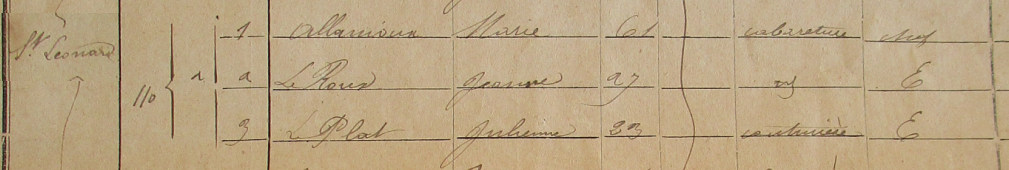 1 Allanioux Marie 61 cabaretière chef
St Léonard
110 1 2 Le Roux Jeanne 27 id E
3 Le Plat Julienne 23 couturière E